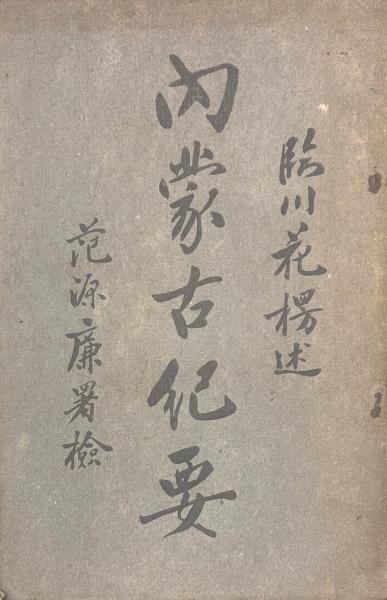 臨川花楞述
內蒙古紀要
范源廉署檢